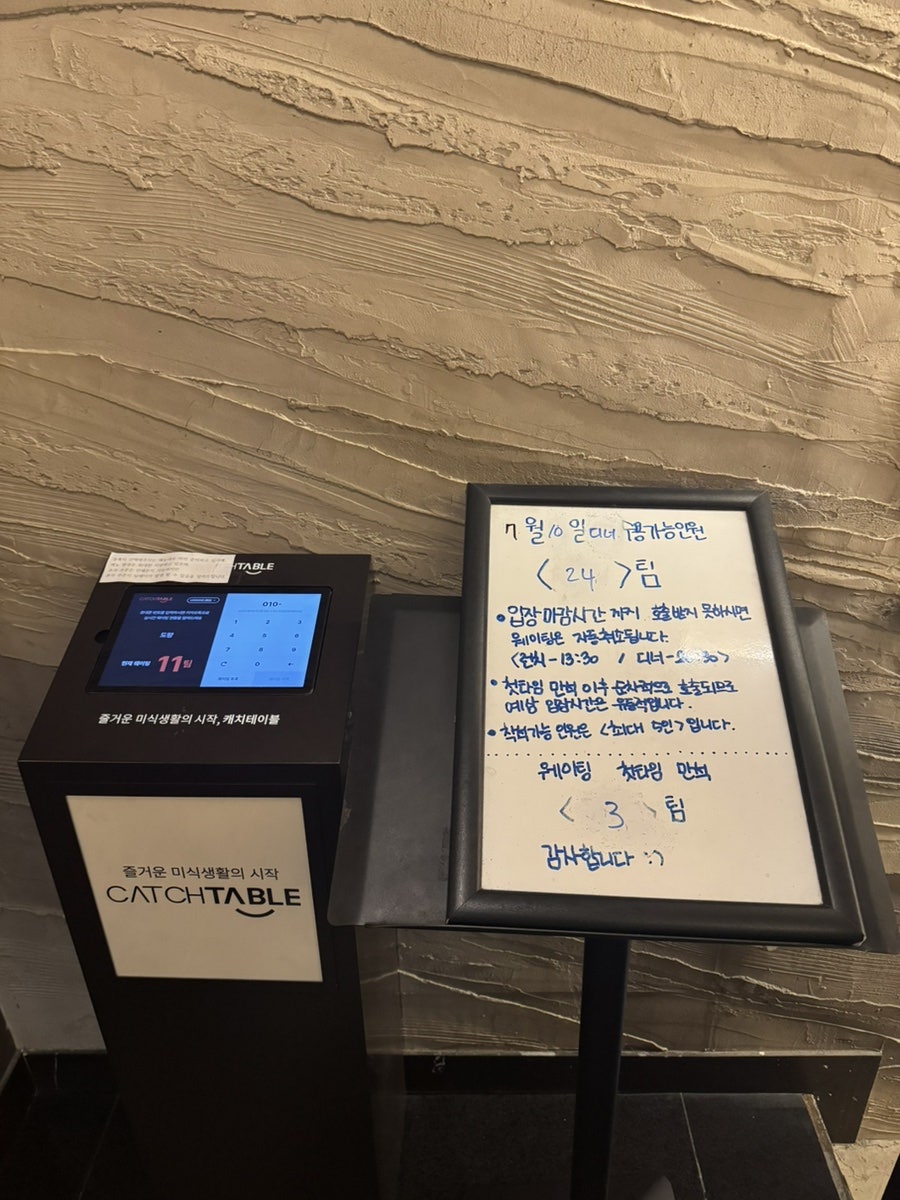 CATCHTABLE
010-
1 2 3
4 5 6
7 8 9
C 0 ←
도량
현재 웨이팅 11팀
즐거운 미식생활의 시작, 캐치테이블
즐거운 미식생활의 시작
CATCHTABLE
7월 10일 디너 수용가능인원
< 24 >팀
• 입장 마감시간 까지 호출받지 못하시면
웨이팅은 자동취소됩니다.
<런치-13:30 / 디너- :30>
• 첫타임 만석 이후 순차적으로 호출되므로
예상 입장시간은 유동적입니다.
• 착석가능 인원은 <최대 5인>입니다.
웨이팅 첫타임 만석
< 3 > 팀
감사합니다 :)